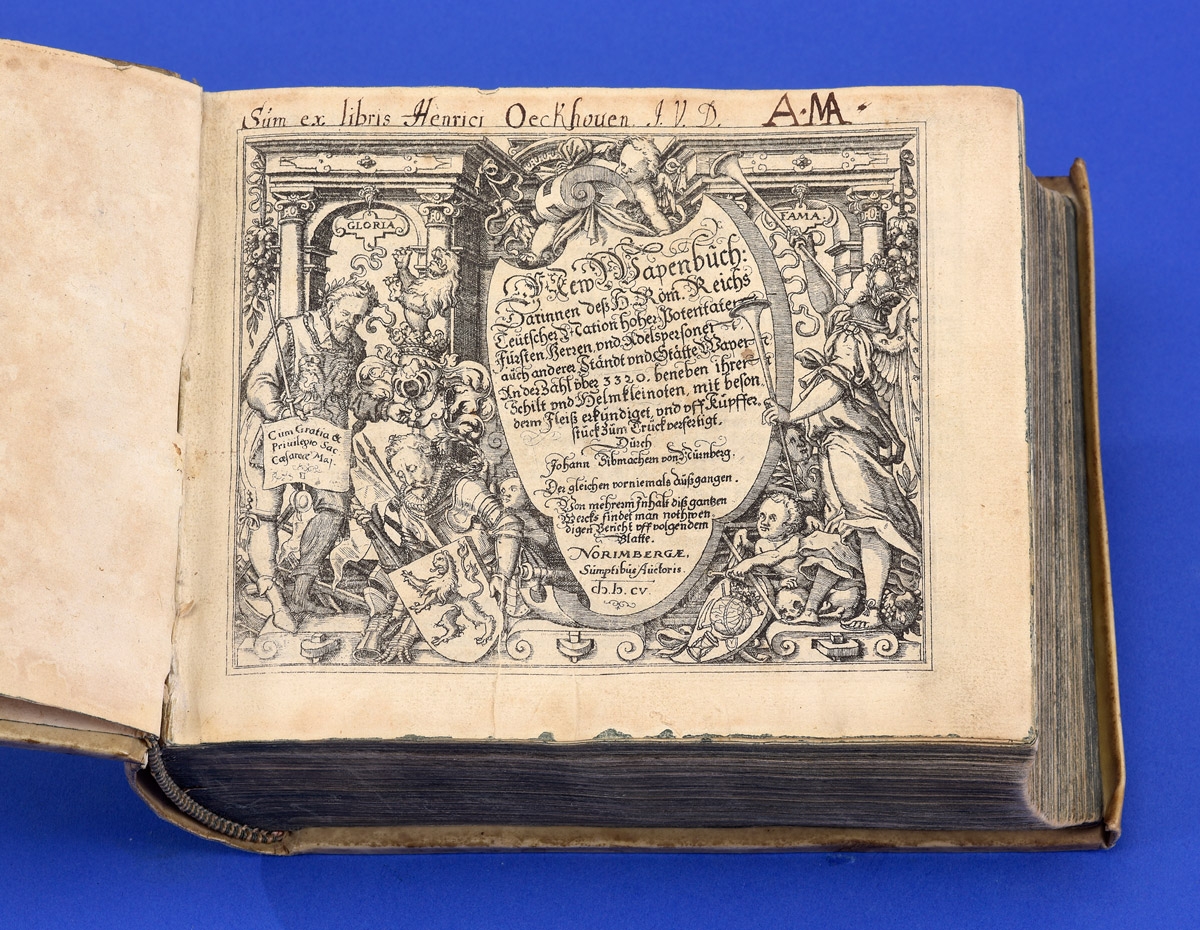 Sùm ex libris Henrici Oeckhouen. J. V. D. A·MA·
GLORIA
FAMA
New Wapenbuch:
Darinnen deß H. Röm. Reichs
Teutscher Nation hoher Potentaten
Fürsten Herren vnd Adelspersonen
auch anderer Ständt vnd Stätte Wapen
An der Zahl vber 3320. beneben ihren
Schilt vnd Helmkleinoten, mit beson
derm Fleiß erkündiget, vnd vff Küpffer
stück züm Trück verfertigt.
Dürch
Johann Sibmachern von Nürnberg.
Der gleichen vor niemals aüßgangen.
Von mehrerm Inhalt diß gantzen
Wercks findet man nothwen
digen Bericht vff volgendem
Blatte.
NORIMBERGÆ,
Sumptibus Auctoris.
cIɔ. Iɔ. cv.
Cum Gratia &
Priuilegio Sac
Cæsareæ Ma.t